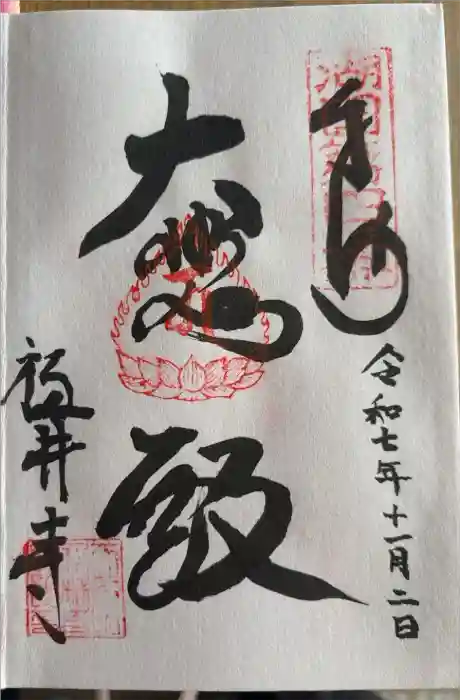 奉拝
令和七年十一月二日
大悲殿
福井寺